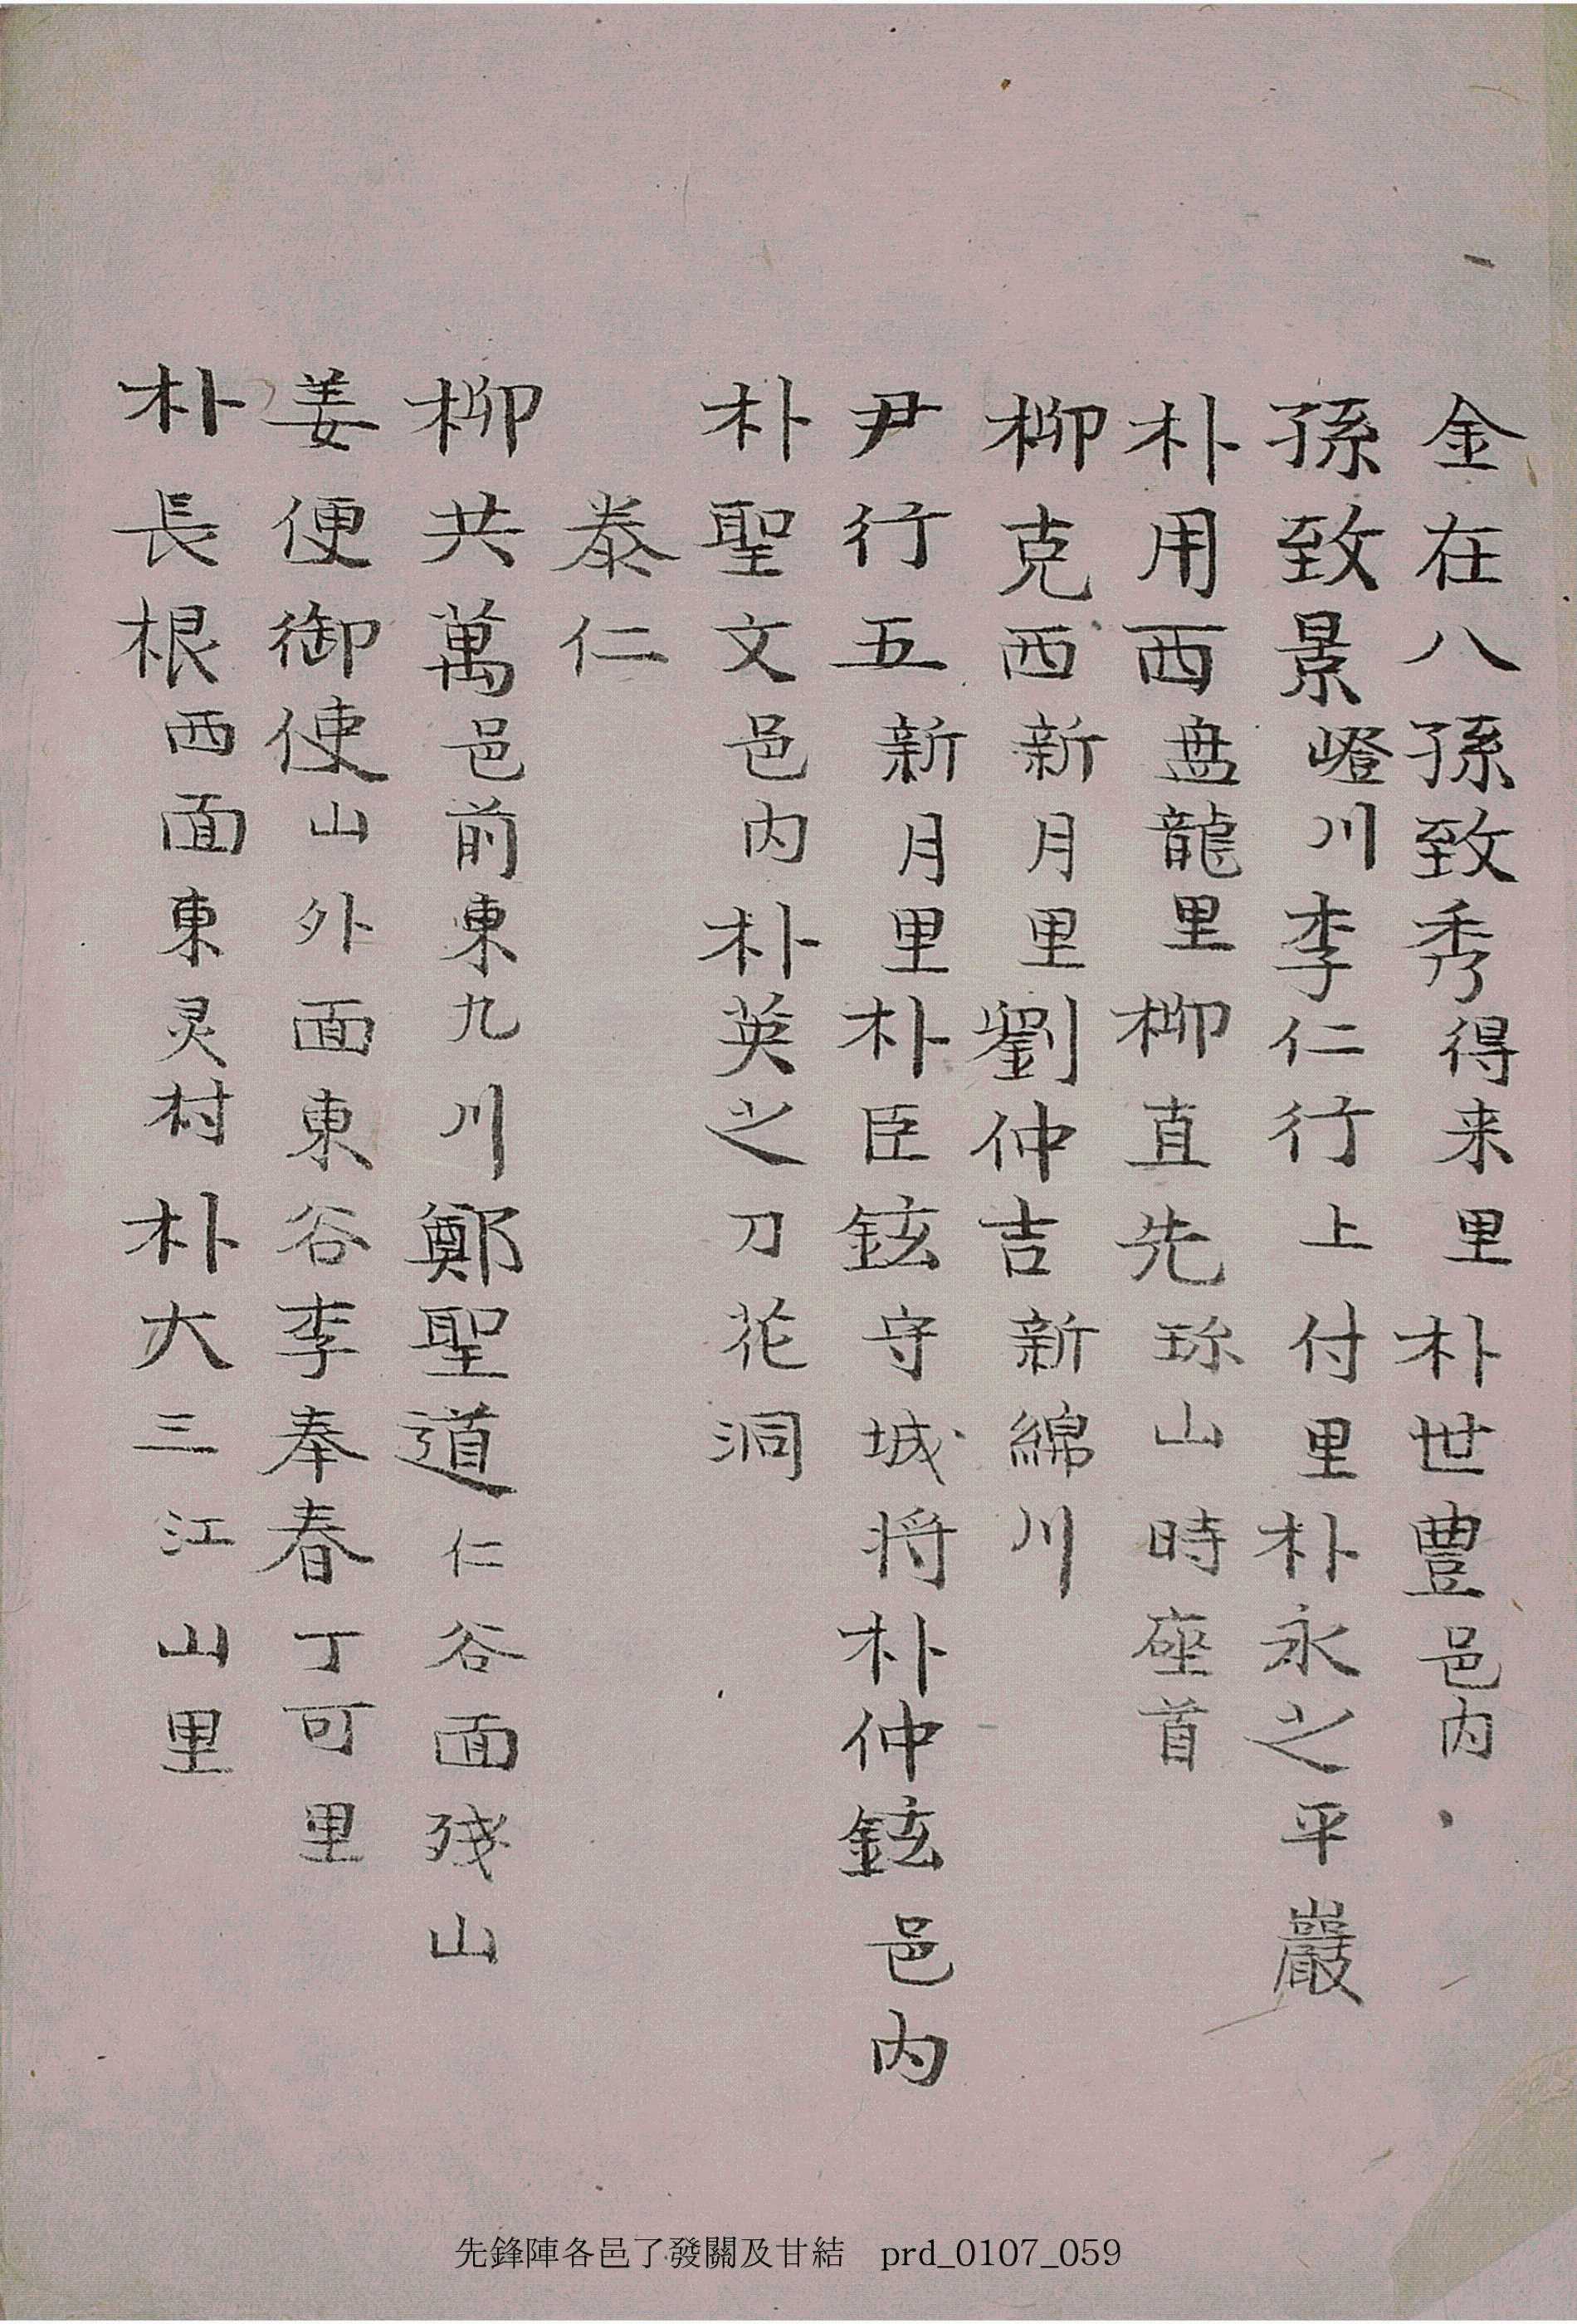 金在八孫致秀得来里朴世豊邑内
孫致景嶝川李仁行上付里朴永之平巖
朴用西盘龍里柳直先珎山時座首
柳克西新月里劉仲吉新綿川
尹行五新月里朴臣鉉守城将朴仲鉉邑内
朴聖文邑内朴英之刀花洞
泰仁
柳共萬邑前東九川鄭聖道仁谷面残山
姜便御使山外面東谷李奉春丁可里
朴長根西面東灵村朴大三江山里
先鋒陣各邑了發關及甘結 prd_0107_059